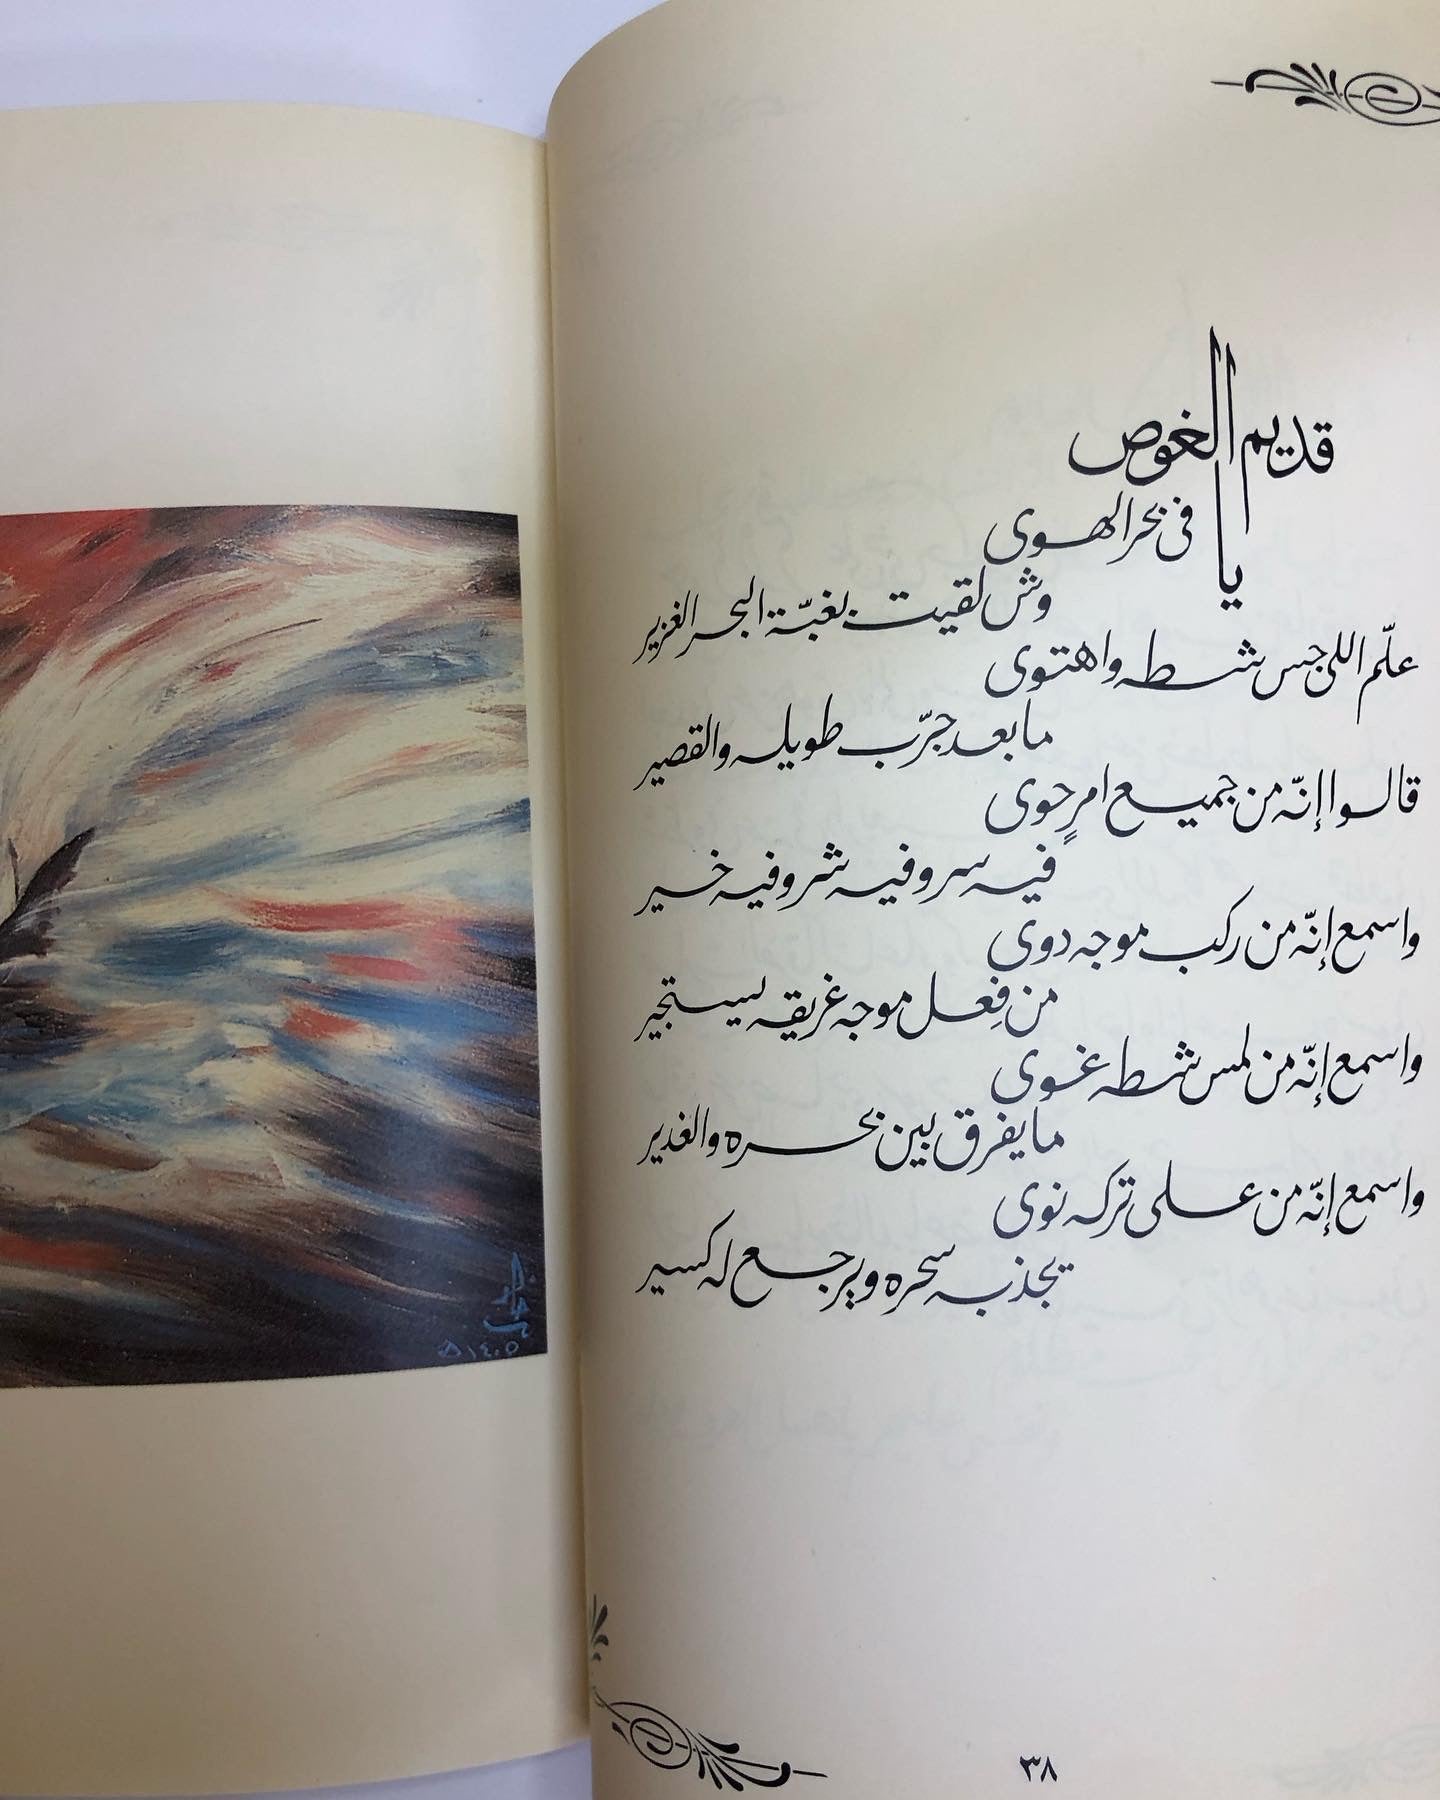 يا قديم الغوص
في بحر الهوى
وش لقيت بغبّة البحر الغزير
علّم اللي جس شطه واهتوى
ما بعد جرّب طويله والقصير
قالوا إنّه من جميع امرٍ حوى
فيه سر وفيه شر وفيه خير
واسمع إنّه من ركب موجه دوى
من فِعل موجه غريقه يستجير
واسمع إنّه من لمس شطه غوى
ما يفرق بين بحره والغدير
واسمع إنّه من على تركه نوى
يجذبه سحره ويرجع له كسير
١٤٠٥هـ
٣٨